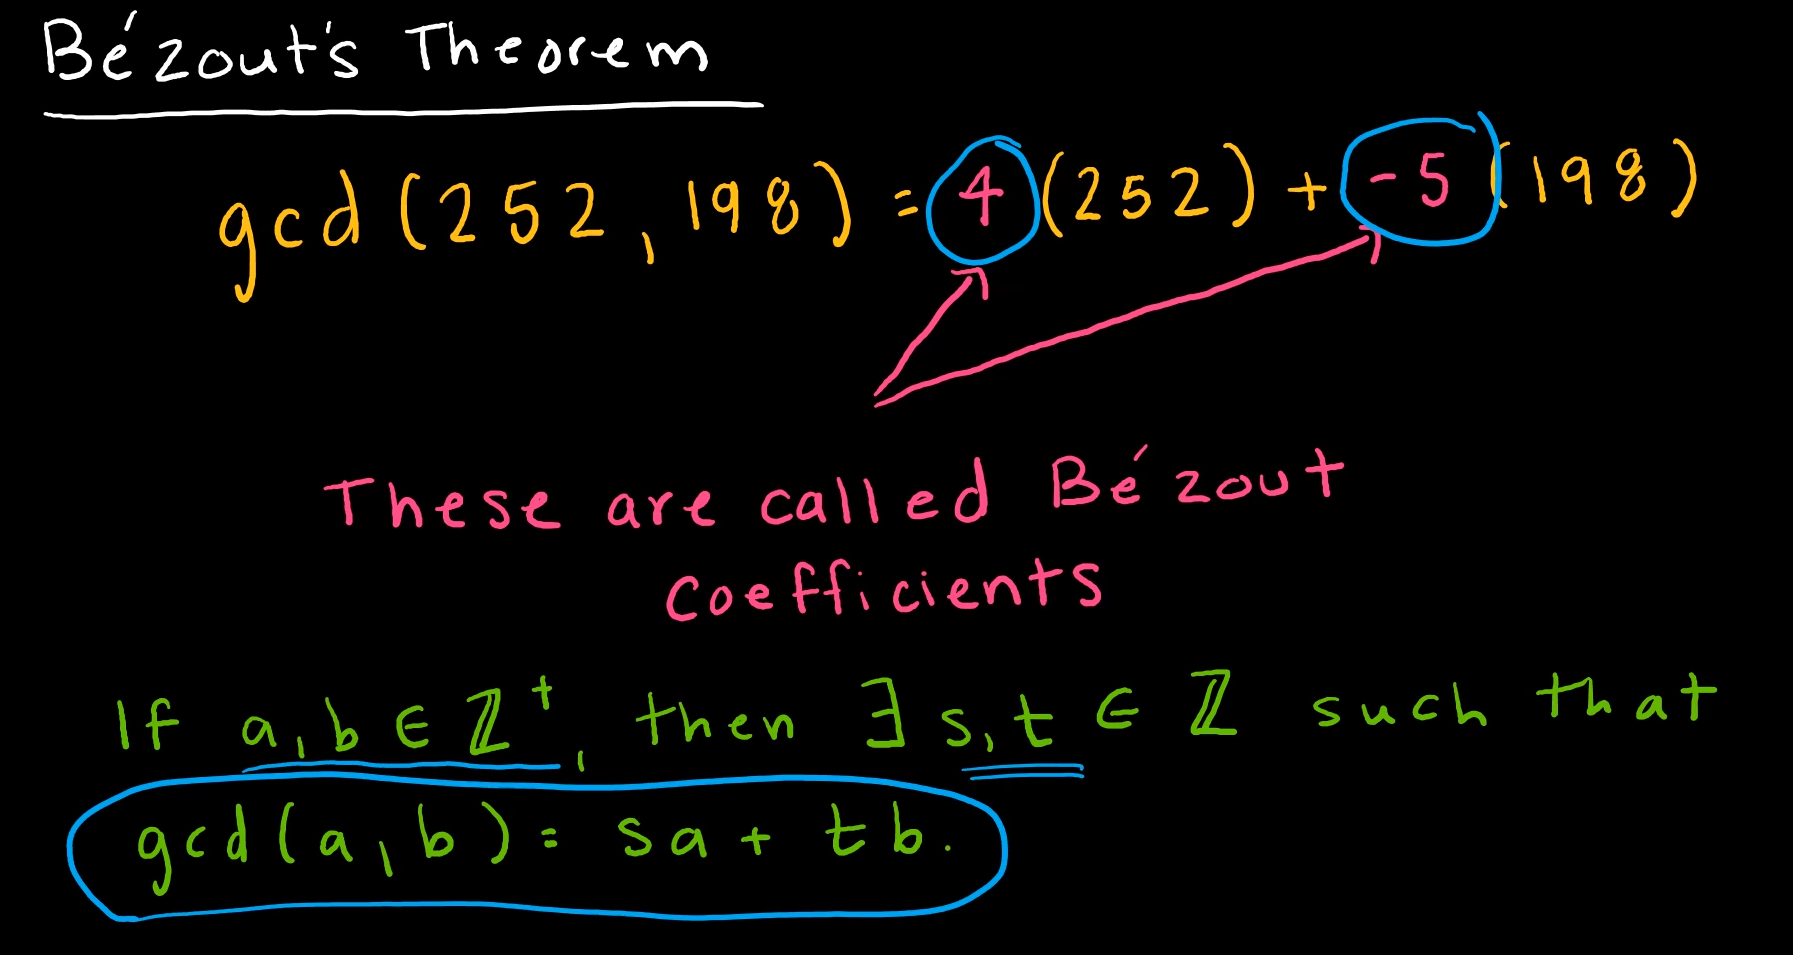 Bézout's Theorem
gcd(252,198) = 4(252) + -5(198)
These are called Bézout
coefficients
If a,b ∈ ℤ⁺, then ∃ s,t ∈ ℤ such that
gcd(a,b) = sa + tb.